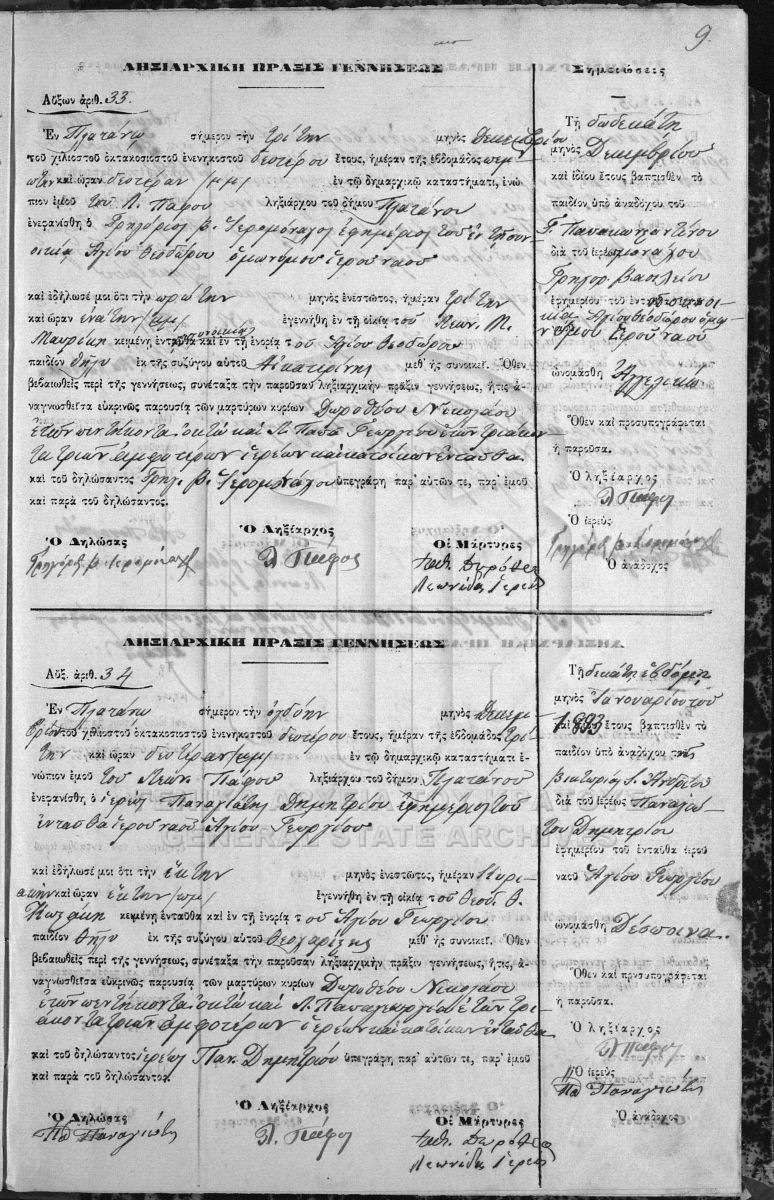 9.
ΛΗΞΙΑΡΧΙΚΗ ΠΡΑΞΙΣ ΓΕΝΝΗΣΕΩΣ
Αὔξων ἀριθ. 33.
Ἐν Πλατάνῳ σήμερον τὴν τρίτην μηνὸς Δεκεμβρίου
τοῦ χιλιοστοῦ ὀκτακοσιοστοῦ ἐνενηκοστοῦ δευτέρου ἔτους, ἡμέραν τῆς ἑβδομάδος πέμ
πτην καὶ ὥραν δευτέραν /μμ/ ἐν τῷ δημαρχικῷ καταστήματι, ἐνώ
πιον ἐμοῦ τοῦ Λ. Πάφου ληξιάρχου τοῦ δήμου Πλατάνου
ἐνεφανίσθη ὁ Γρηγόριος Β. Ἱερομόναχος ἐφημέριος τοῦ ἐν τῇ συν
οικίᾳ Ἁγίου Θεοδώρου ὁμωνύμου ἱεροῦ ναοῦ
καὶ ἐδήλωσέ μοι ὅτι τὴν πρώτην μηνὸς ἐνεστῶτος, ἡμέραν τρίτην
καὶ ὥραν ἐνάτην /πμ/ ἐγεννήθη ἐν τῇ οἰκίᾳ τοῦ Κων. Μ.
Μαυρίκη κειμένῃ ἐνταῦθα καὶ ἐν τῇ ἐνορίᾳ τοῦ Ἁγίου Θεοδώρου
συνοικίᾳ
παιδίον θῆλυ ἐκ τῆς συζύγου αὐτοῦ Αἰκατερίνης μεθ' ἧς συνοικεῖ. Ὅθεν
βεβαιωθεὶς περὶ τῆς γεννήσεως, συνέταξα τὴν παροῦσαν ληξιαρχικὴν πρᾶξιν γεννήσεως, ἥτις ἀ-
ναγνωσθεῖσα εὐκρινῶς παρουσίᾳ τῶν μαρτύρων κυρίων Δωροθέου Νικολάου
ἐτῶν πεντήκοντα ὀκτὼ καὶ Λ. Παπᾶ Γεωργίου ἐτῶν τριάκον
τα τριῶν ἀμφοτέρων ἱερέων καὶ κατοίκων ἐνταῦθα
καὶ τοῦ δηλώσαντος Γρηγ. Β. Ἱερομονάχου ὑπεγράφη παρ' αὐτῶν τε, παρ' ἐμοῦ
καὶ παρὰ τοῦ δηλώσαντος.
Ὁ Δηλώσας
Γρηγόριος Β. Ἱερομόναχος
Ὁ Ληξίαρχος
Λ Πάφος
Οἱ Μάρτυρες
παπ. Δωρόθεος
Λεωνίδας Ἱερεύς
Σημειώσεις
Τῇ δωδεκάτῃ
μηνὸς Δεκεμβρίου
καὶ ἰδίου ἔτους βαπτισθὲν τὸ
παιδίον, ὑπὸ ἀναδόχου τοῦ
Γ. Παπακωνσταντίνου
διὰ τοῦ ἱερομονάχου
Γρηγορ. Βασιλείου
ἐφημερίου τοῦ ἐν τῇ συνοι-
κίᾳ Ἁγίου Θεοδώρου ὁμω
νύμου ἱεροῦ ναοῦ
ὠνομάσθη Ἀγγελικὼ
Ὅθεν καὶ προσυπογράφεται
ἡ παροῦσα.
Ὁ ληξίαρχος
Λ Πάφος
Ὁ ἱερεὺς
Γρηγόριος Β. Ἱερομόναχος
Ὁ ἀνάδοχος
ΛΗΞΙΑΡΧΙΚΗ ΠΡΑΞΙΣ ΓΕΝΝΗΣΕΩΣ
Αὔξ. ἀριθ. 34
Ἐν Πλατάνῳ σήμερον τὴν ὀγδόην μηνὸς Δεκεμ
βρίου τοῦ χιλιοστοῦ ὀκτακοσιοστοῦ ἐνενηκοστοῦ δευτέρου ἔτους, ἡμέραν τῆς ἑβδομάδος τρί
την καὶ ὥραν δευτέραν /πμ/ ἐν τῷ δημαρχικῷ καταστήματι ἐ-
νώπιον ἐμοῦ τοῦ Λεων. Πάφου ληξιάρχου τοῦ δήμου Πλατάνου
ἐνεφανίσθη ὁ ἱερεὺς Παναγιώτης Δημητρίου ἐφημέριος τοῦ
ἐνταῦθα ἱεροῦ ναοῦ Ἁγίου Γεωργίου
GENERAL STATE ARCHIVES
καὶ ἐδήλωσέ μοι ὅτι τὴν ἕκτην μηνὸς ἐνεστῶτος, ἡμέραν Κυρι-
ακὴν καὶ ὥραν ἕκτην /πμ/ ἐγεννήθη ἐν τῇ οἰκίᾳ τοῦ Θεοδ. Θ.
Κοζάκη κειμένῃ ἐνταῦθα καὶ ἐν τῇ ἐνορίᾳ τοῦ Ἁγίου Γεωργίου
παιδίον θῆλυ ἐκ τῆς συζύγου αὐτοῦ Θεοχαρίτης μεθ' ἧς συνοικεῖ. Ὅθεν
βεβαιωθεὶς περὶ τῆς γεννήσεως, συνέταξα τὴν παροῦσαν ληξιαρχικὴν πρᾶξιν γεννήσεως, ἥτις, ἀ-
ναγνωσθεῖσα εὐκρινῶς παρουσίᾳ τῶν μαρτύρων κυρίων Δωροθέου Νικολάου
ἐτῶν πεντήκοντα ὀκτὼ καὶ Λ. Παπαγεωργίου ἐτῶν τρι-
άκοντα τριῶν ἀμφοτέρων ἱερέων καὶ κατοίκων ἐνταῦθα
καὶ τοῦ δηλώσαντος ἱερέως Παν. Δημητρίου ὑπεγράφη παρ' αὐτῶν τε, παρ' ἐμοῦ
καὶ παρὰ τοῦ δηλώσαντος.
Ὁ Δηλώσας
Πα Παναγιώτης
Ὁ Ληξίαρχος
Λ. Πάφος
Οἱ Μάρτυρες
παπ. Δωρόθεος
Λεωνίδας Ἱερεύς
Τῇ δεκάτῃ ἑβδόμῃ
μηνὸς Ἰανουαρίου τοῦ
1893 ἔτους βαπτισθὲν τὸ
παιδίον ὑπὸ ἀναδόχου τῆς
Βικτωρίας Ἰ. Ἀνδρέου
διὰ τοῦ ἱερέως Παναγιώ-
του Δημητρίου
ἐφημερίου τοῦ ἐνταῦθα ἱεροῦ
ναοῦ Ἁγίου Γεωργίου
ὠνομάσθη Δέσποινα.
Ὅθεν καὶ προσυπογράφεται
ἡ παροῦσα.
Ὁ ληξίαρχος
Λ Πάφος
Ὁ ἱερεὺς
Πα Παναγιώτης
Ὁ ἀνάδοχος